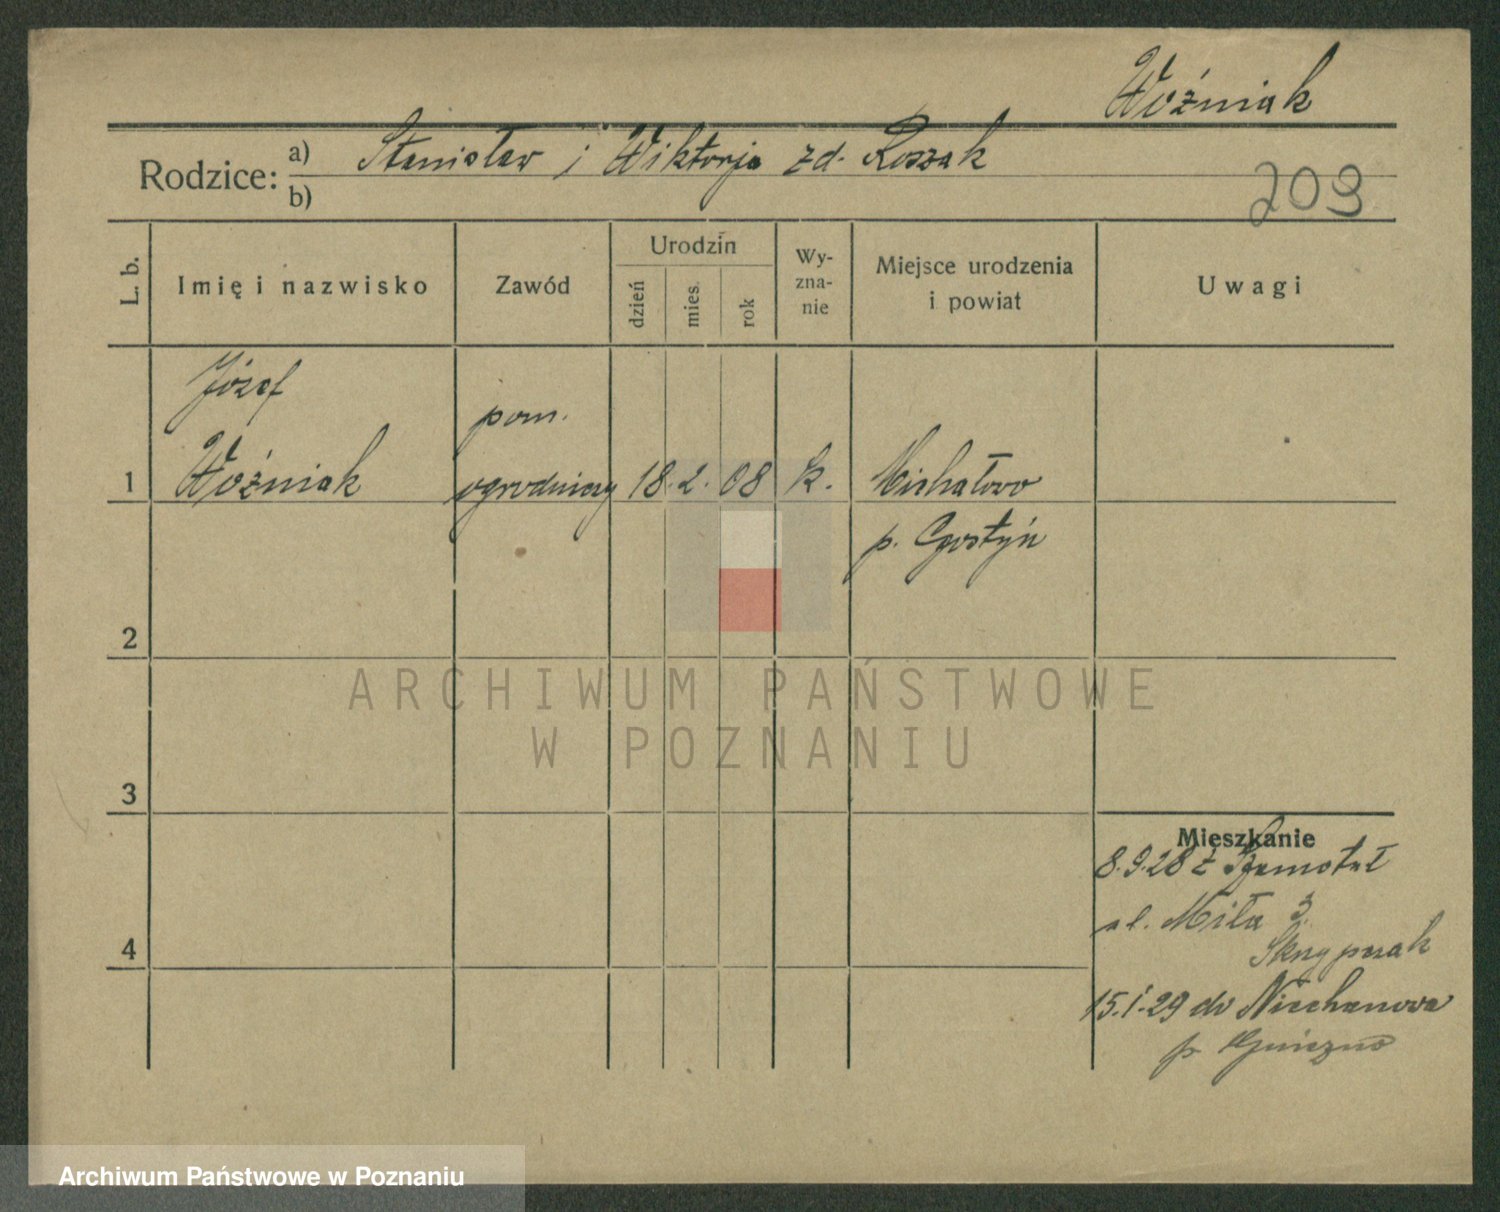 Woźniak
Rodzice: a) Stanisław i Wiktorja zd. Roszak
b)
209
L. b.
Imię i nazwisko
Zawód
Urodzin
dzień
mies.
rok
Wy-
zna-
nie
Miejsce urodzenia
i powiat
Uwagi
Józef
pom.
1 Woźniak ogrodniczy 18. 2. 08 k. Michałowo
p. Gostyń
2
ARCHIWUM PAŃSTWOWE
W POZNANIU
3
Mieszkanie
8.9.28 z Szamotuł
ul. Miła 3.
4
15.I.29 do Niechanowa
p. Gniezno
Archiwum Państwowe w Poznaniu